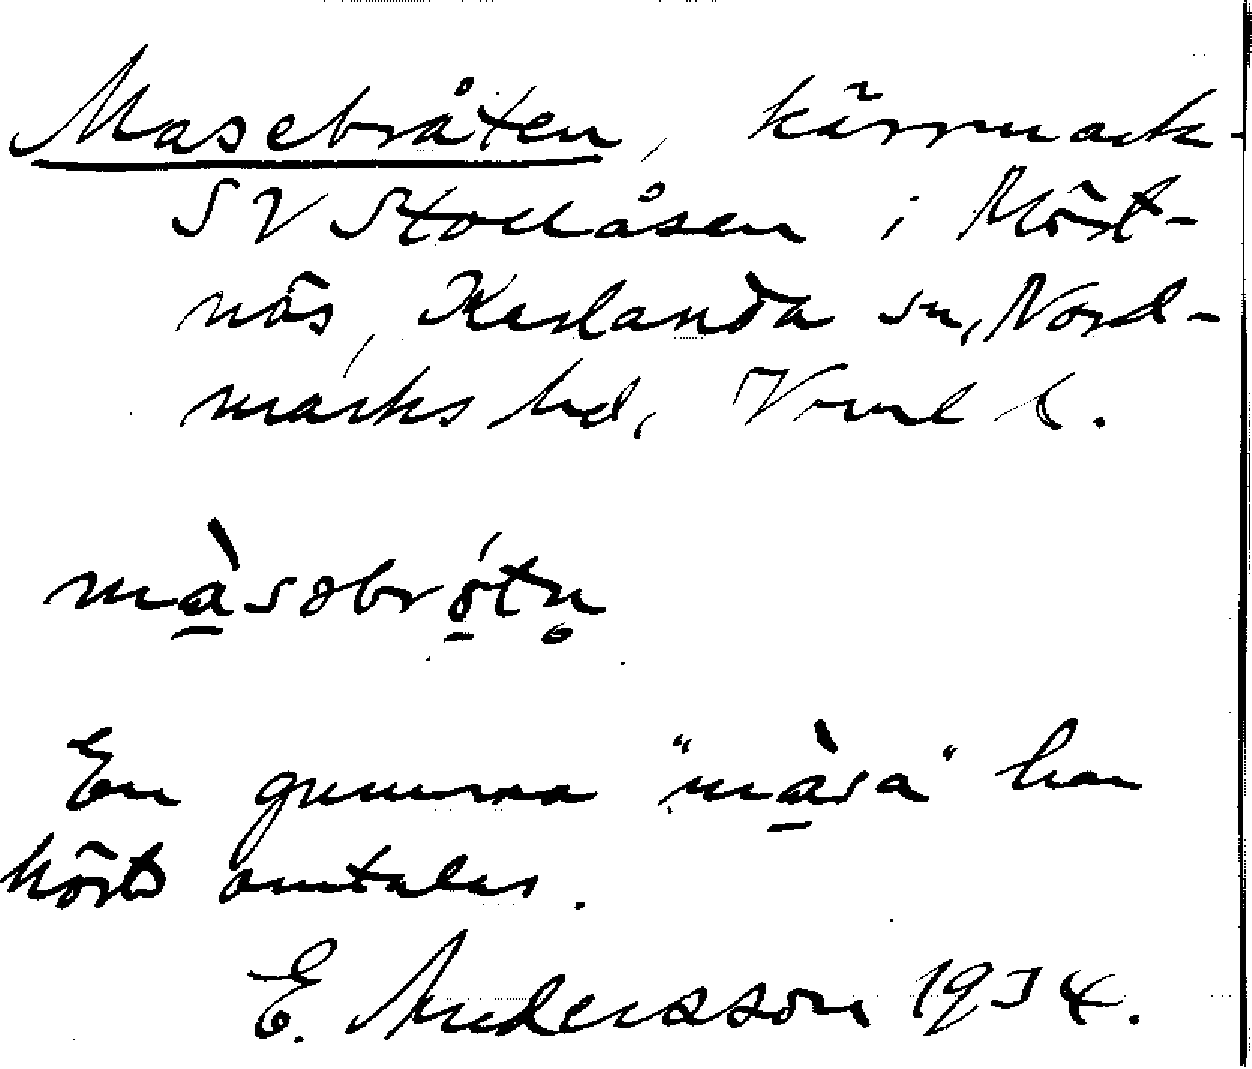 Masebråten, kärrmack-
SV Stollåsen i Höst-
näs, Karlanda sn, Nord-
marks hd, Verml l.
màsəbrótn̥
En gumma "màsa" har
hörts omtalas.
E. Andersson 1934.